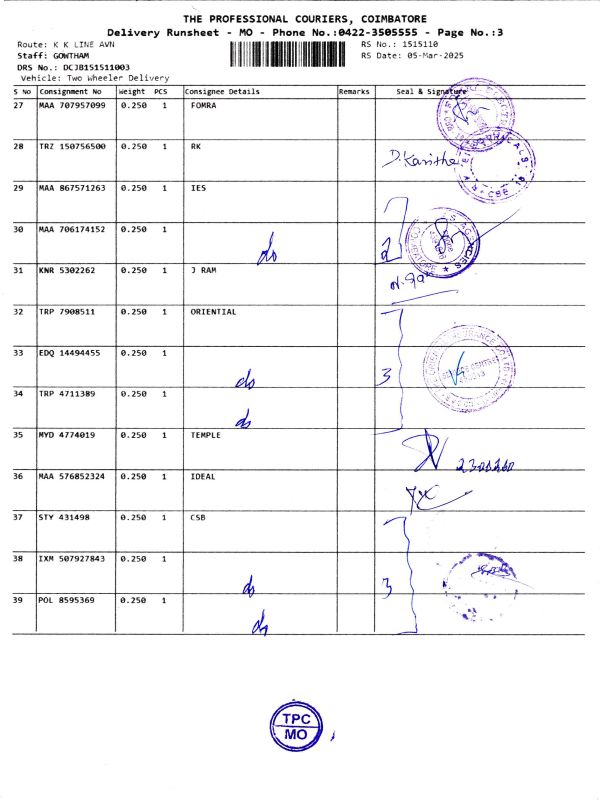 THE PROFESSIONAL COURIERS, COIMBATORE
Delivery Runsheet - MO - Phone No.:0422-3505555 - Page No.:3
Route: K K LINE AVN
RS No.: 1515110
Staff: GOWTHAM
RS Date: 05-Mar-2025
DRS No.: DCJB151511003
Vehicle: Two Wheeler Delivery
S No Consignment No Weight PCS Consignee Details Remarks Seal & Signature
27 MAA 707957099 0.250 1 FOMRA
28 TRZ 150756500 0.250 1 RK
D. Kanitha
29 MAA 867571263 0.250 1 IES
30 MAA 706174152 0.250 1 do 2
31 KNR 5302262 0.250 1 J RAM
32 TRP 7908511 0.250 1 ORIENTIAL
33 EDQ 14494455 0.250 1 do 3
34 TRP 4711389 0.250 1 do
35 MYD 4774019 0.250 1 TEMPLE
36 MAA 576852324 0.250 1 IDEAL
37 STY 431498 0.250 1 CSB
38 IXM 507927843 0.250 1 do 3
39 POL 8595369 0.250 1 do
TPC
MO